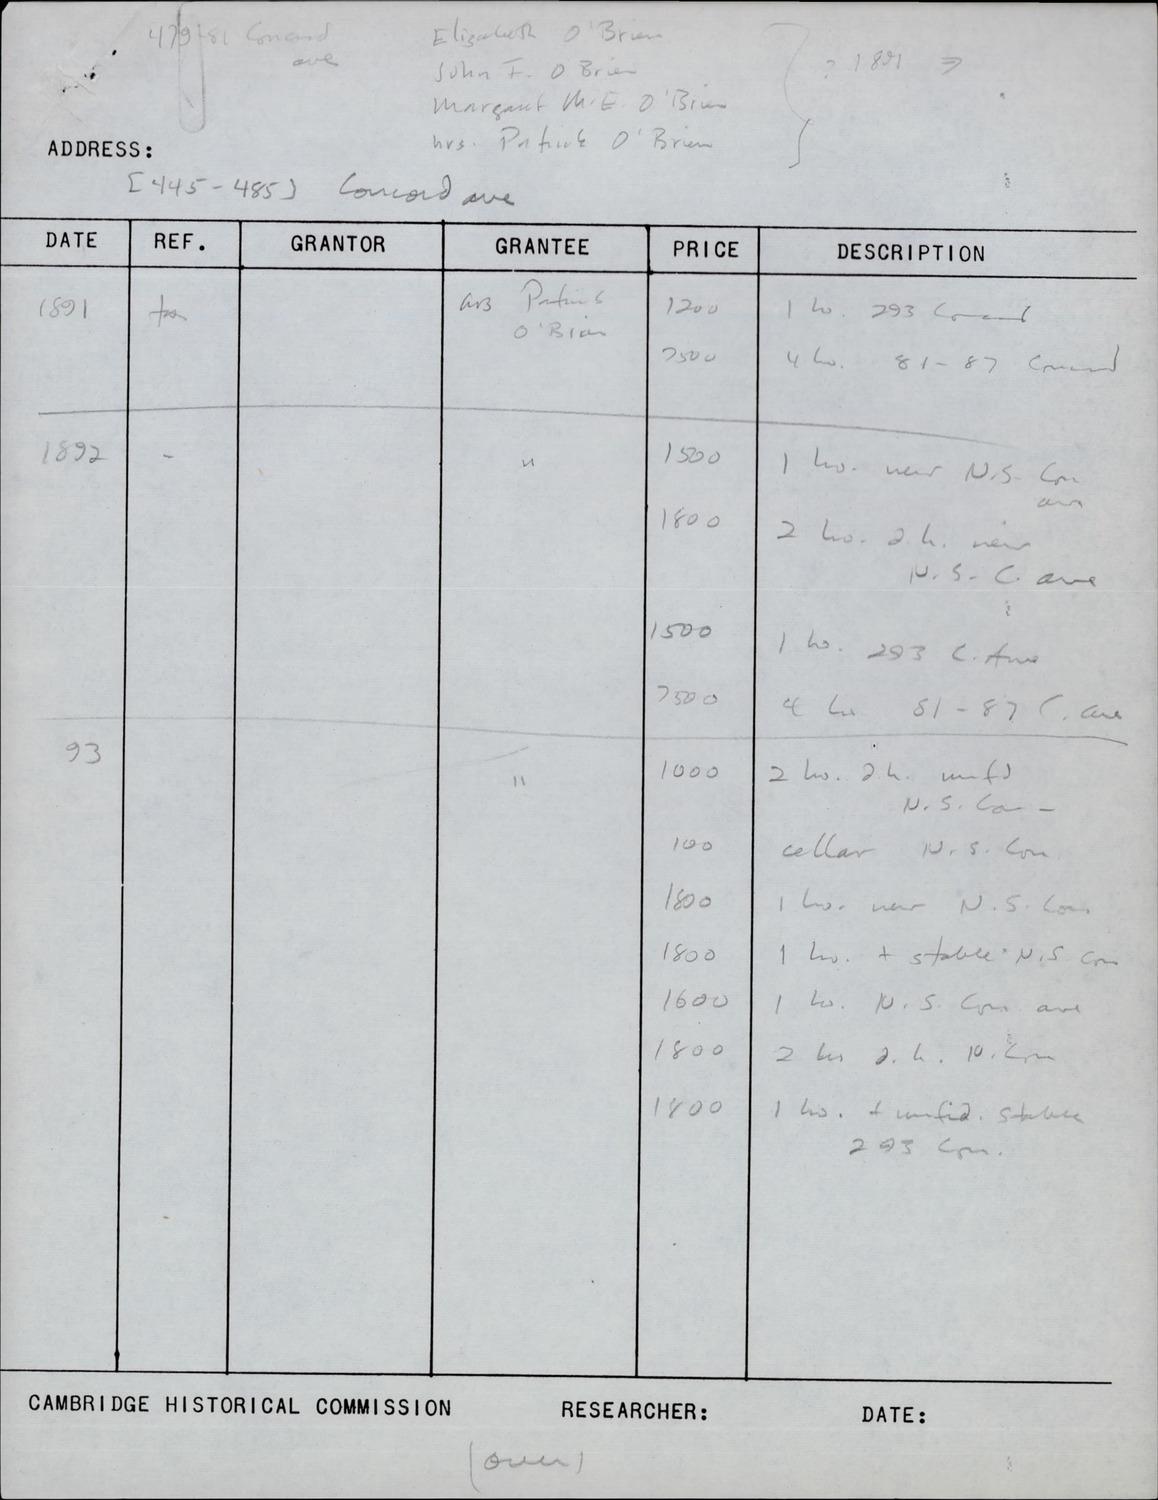 479-81 Concord
ave
Elizabeth O'Brien
John F. O'Brien
Margaret M.E. O'Brien
Mrs. Patrick O'Brien
? 1891 ⇒
ADDRESS:
[445-485] Concord ave
DATE REF. GRANTOR GRANTEE PRICE DESCRIPTION
1891 tax Mrs Patrick 1200 1 ho. 293 Concord
O'Brien
7500 4 ho. 81-87 Concord
1892 - " 1500 1 ho. near N.S. Con
ave
1800 2 ho. 2 h. near
N.S. C. ave
1500 1 ho. 293 C. Ave
7500 4 ho 81-87 C. ave
93 " 1000 2 ho. 2 h. unfd
N.S. Con -
100 cellar N.S. Con
1800 1 ho. near N.S. Con
1800 1 ho. + stable N.S Con
1600 1 ho. N.S. Con ave
1800 2 ho 2.h. N. Con
1800 1 ho. + unfid. stable
293 Con.
CAMBRIDGE HISTORICAL COMMISSION RESEARCHER: DATE:
(over)